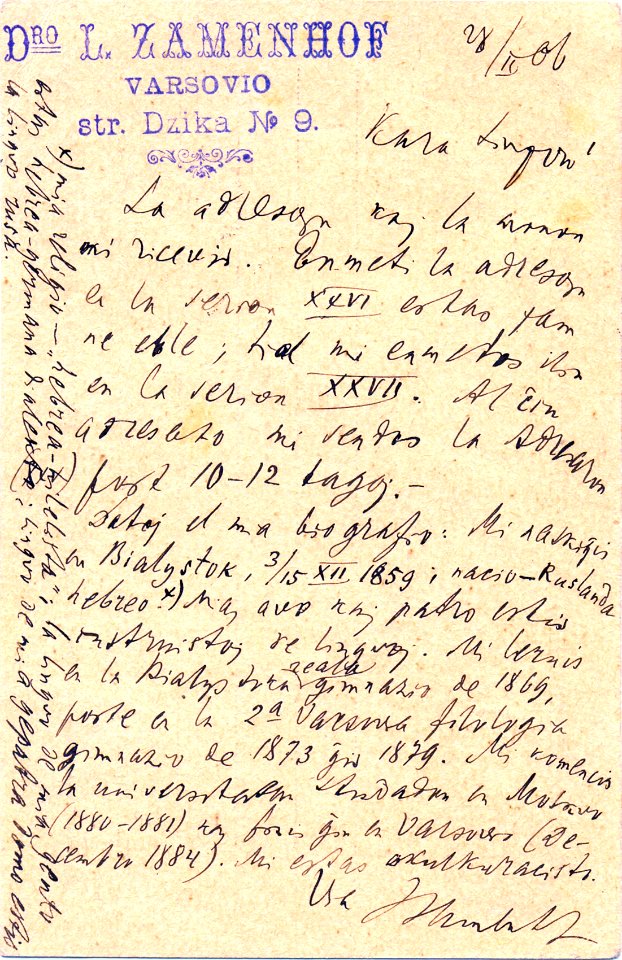 DRO L. ZAMENHOF
VARSOVIO
str. Dzika № 9.
28/II 06
Kara
La adreson kaj la monon
mi ricevis. Enmeti la adreson
en la serion XXVI estas jam
ne eble; tial mi enmetos ĝin
en la serion XXVII. Al ĉiu
adresato mi sendos la Adresaron
post 10-12 tagoj.-
Datoj el mia biografio: Mi naskiĝis
en Bialystok, 3/15 XII 1859; nacio-Ruslanda
hebreo x) Miaj avo kaj patro estis
instruistoj de lingvoj. Mi lernis
en la Bialystoka reala gimnazio de 1869,
poste en la 2a Varsovia filologia
gimnazio de 1873 ĝis 1879. Mi komencis
la universitatan studadon en Moskvo
(1880-1881) kaj finis ĝin en Varsovio (De-
cembro 1884). Mi estas okulkuracisto.
Via
x) mia religio — „hebrea- ”; la lingvo de mia gento
estas hebrea-germana dialekto; lingvo de mia gepatra domo estis
la lingvo rusa.